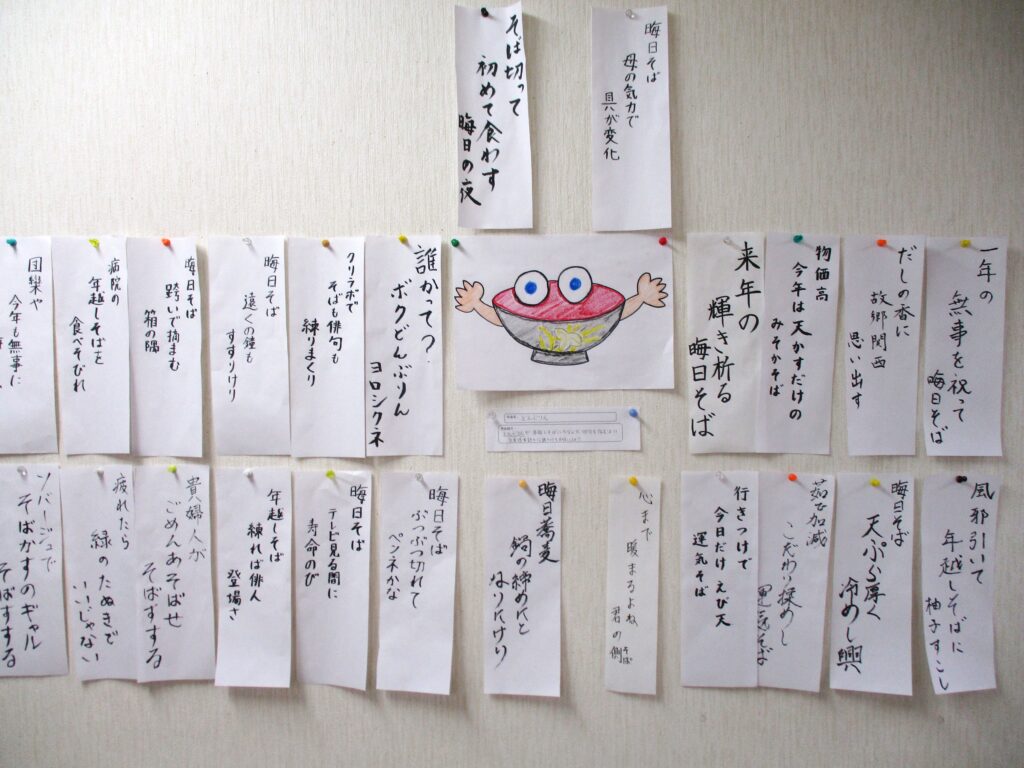 晦日そば
母の気力で
具が変化
そば切って
初めて食わす
晦日の夜
一年の
無事を祝って
晦日そば
だしの香に
故郷関西
思い出す
物価高
今年は天かすだけの
みそかそば
来年の
輝き祈る
晦日そば
誰かって?
ボクどんぶりん
ヨロシクネ
クリラボで
そばも俳句も
練りまくり
晦日そば
遠くの鐘も
すすりけり
晦日そば
跨いで摘まむ
箱の隅
病院の
年越しそばを
食べそびれ
団欒や
今年も無事に
どんぶりん
風邪引いて
年越しそばに
柚子すこし
晦日そば
天ぷら厚く
冷めし興
茹で加減
こだわり揉めし
行きつけで
今日だけえび天
運気そば
心まで
暖まるよね
君の側
そば
晦日蕎麦
鍋の締めにと
なりにけり
晦日そば
ぶつぶつ切れて
ペンネかな
晦日そば
テレビ見る間に
寿命のび
年越しそば
練れば俳人
登場さ
貴婦人が
ごめんあそばせ
そばすする
疲れたら
緑のたぬきで
いいじゃない
ソバージュで
そばかすのギャル
そばすする